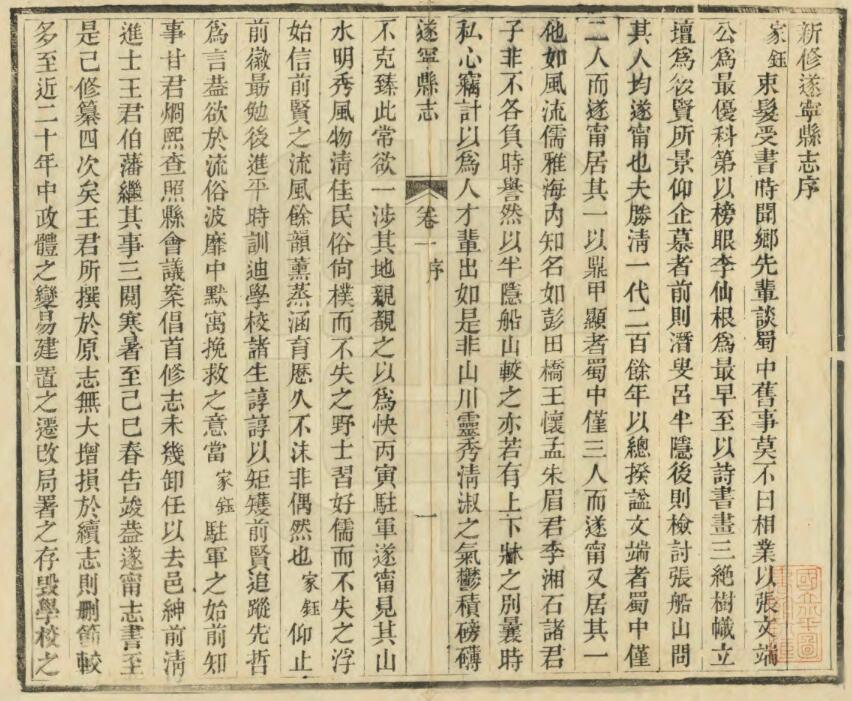 新修遂寧縣志序
家鈺束髮受書時聞鄉先輩談蜀中舊事莫不曰相業以張文端
公爲最優科第以榜眼李仙根爲最早至以詩書畫三絕樹幟立
壇爲後賢所景仰企慕者前則潛叟呂半隱後則檢討張船山問
其人均遂甯也夫勝清一代二百餘年以總揆諡文端者蜀中僅
二人而遂甯居其一以鼎甲顯者蜀中僅三人而遂甯又居其一
他如風流儒雅海內知名如彭田橋王懷孟朱眉君李湘石諸君
子非不各負時譽然以半隱船山較之亦若有上下牀之別曩時
私心竊計以爲人才輩出如是非山川靈秀清淑之氣鬱積磅礴
遂寧縣志 卷一序 一
不克臻此常欲一涉其地親覩之以爲快丙寅駐軍遂甯見其山
水明秀風物清佳民俗尙樸而不失之野士習好儒而不失之浮
始信前賢之流風餘韻薰蒸涵育歷久不沫非偶然也家鈺仰止
前徽最勉後進平時訓迪學校諸生諄諄以矩矱前賢追蹤先哲
爲言葢欲於流俗波靡中默寓挽救之意當家鈺駐軍之始前知
事甘君燜熙查照縣會議案倡首修志未幾卸任以去邑紳前清
進士王君伯藩繼其事三閱寒暑至己巳春告竣葢遂甯志書至
是已修纂四次矣王君所撰於原志無大增損於續志則刪節較
多至近二十年中政體之變易建置之遷改局署之存毀學校之